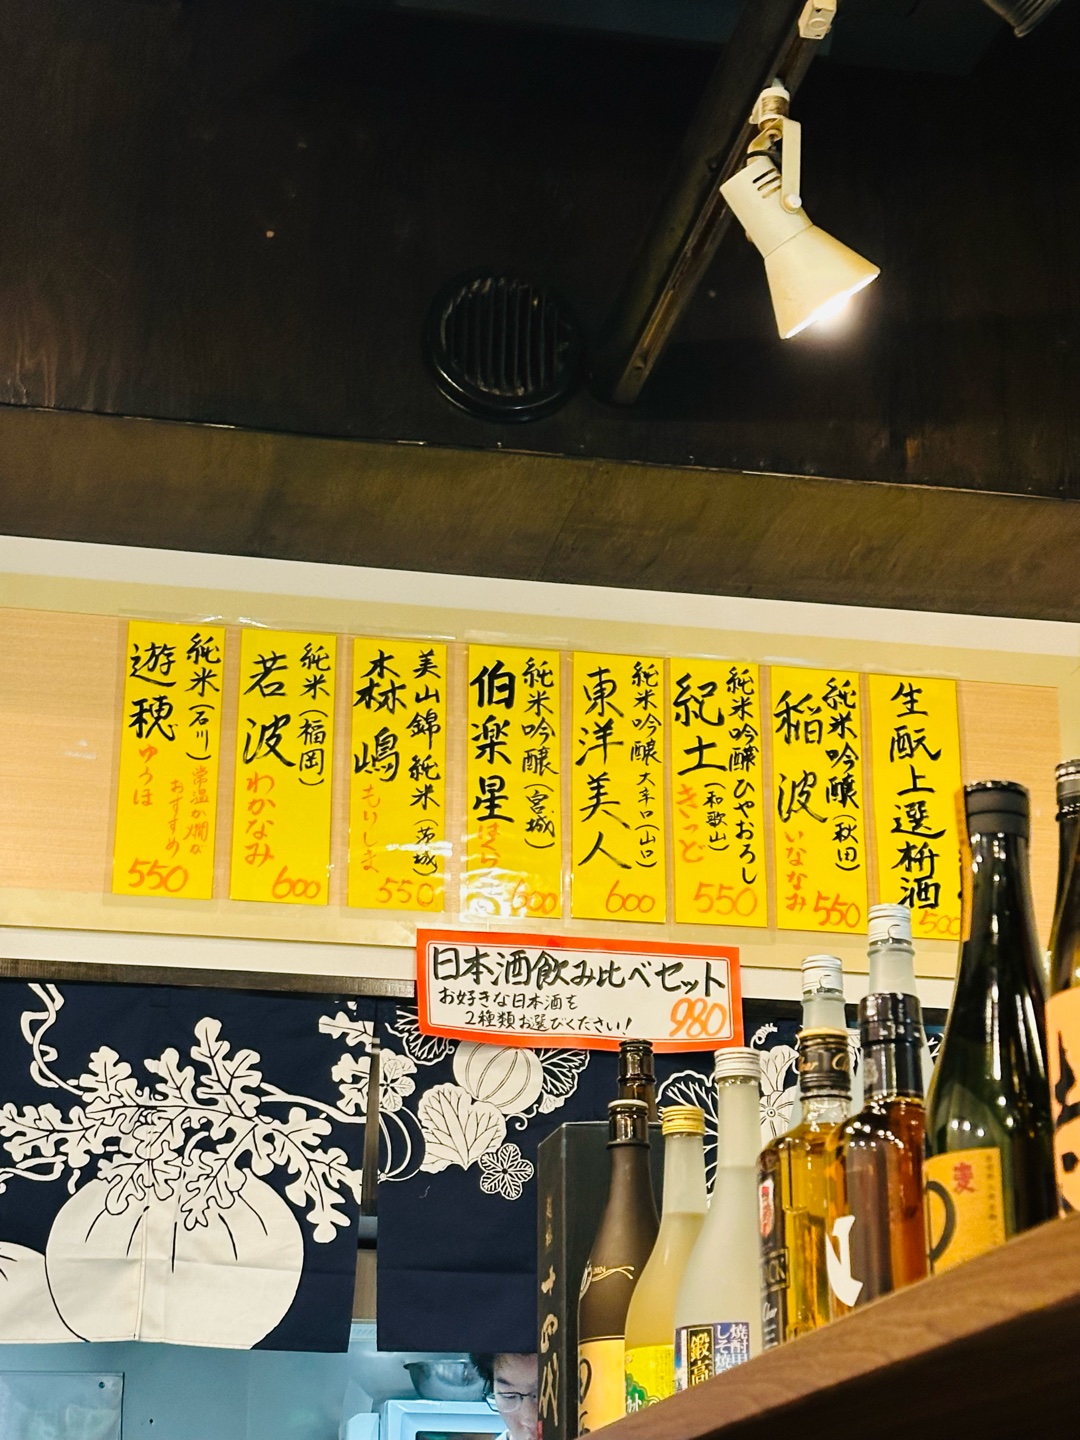 生酛上選枡酒
500
純米吟醸(秋田)
稲波
いななみ
550
純米吟醸ひやおろし
紀土(和歌山)
きっど
550
純米吟醸大辛口(山口)
東洋美人
600
純米吟醸(宮城)
伯楽星
はくら
600
美山錦純米(茨城)
森嶋
もりしま
550
純米(福岡)
若波
わかなみ
600
純米(石川)
遊穂
ゆうほ
常温か燗が
おすすめ
550
日本酒飲み比べセット
お好きな日本酒を
2種類お選びください!
980
十四代
焼酎
しそ焼
鍛高
麦